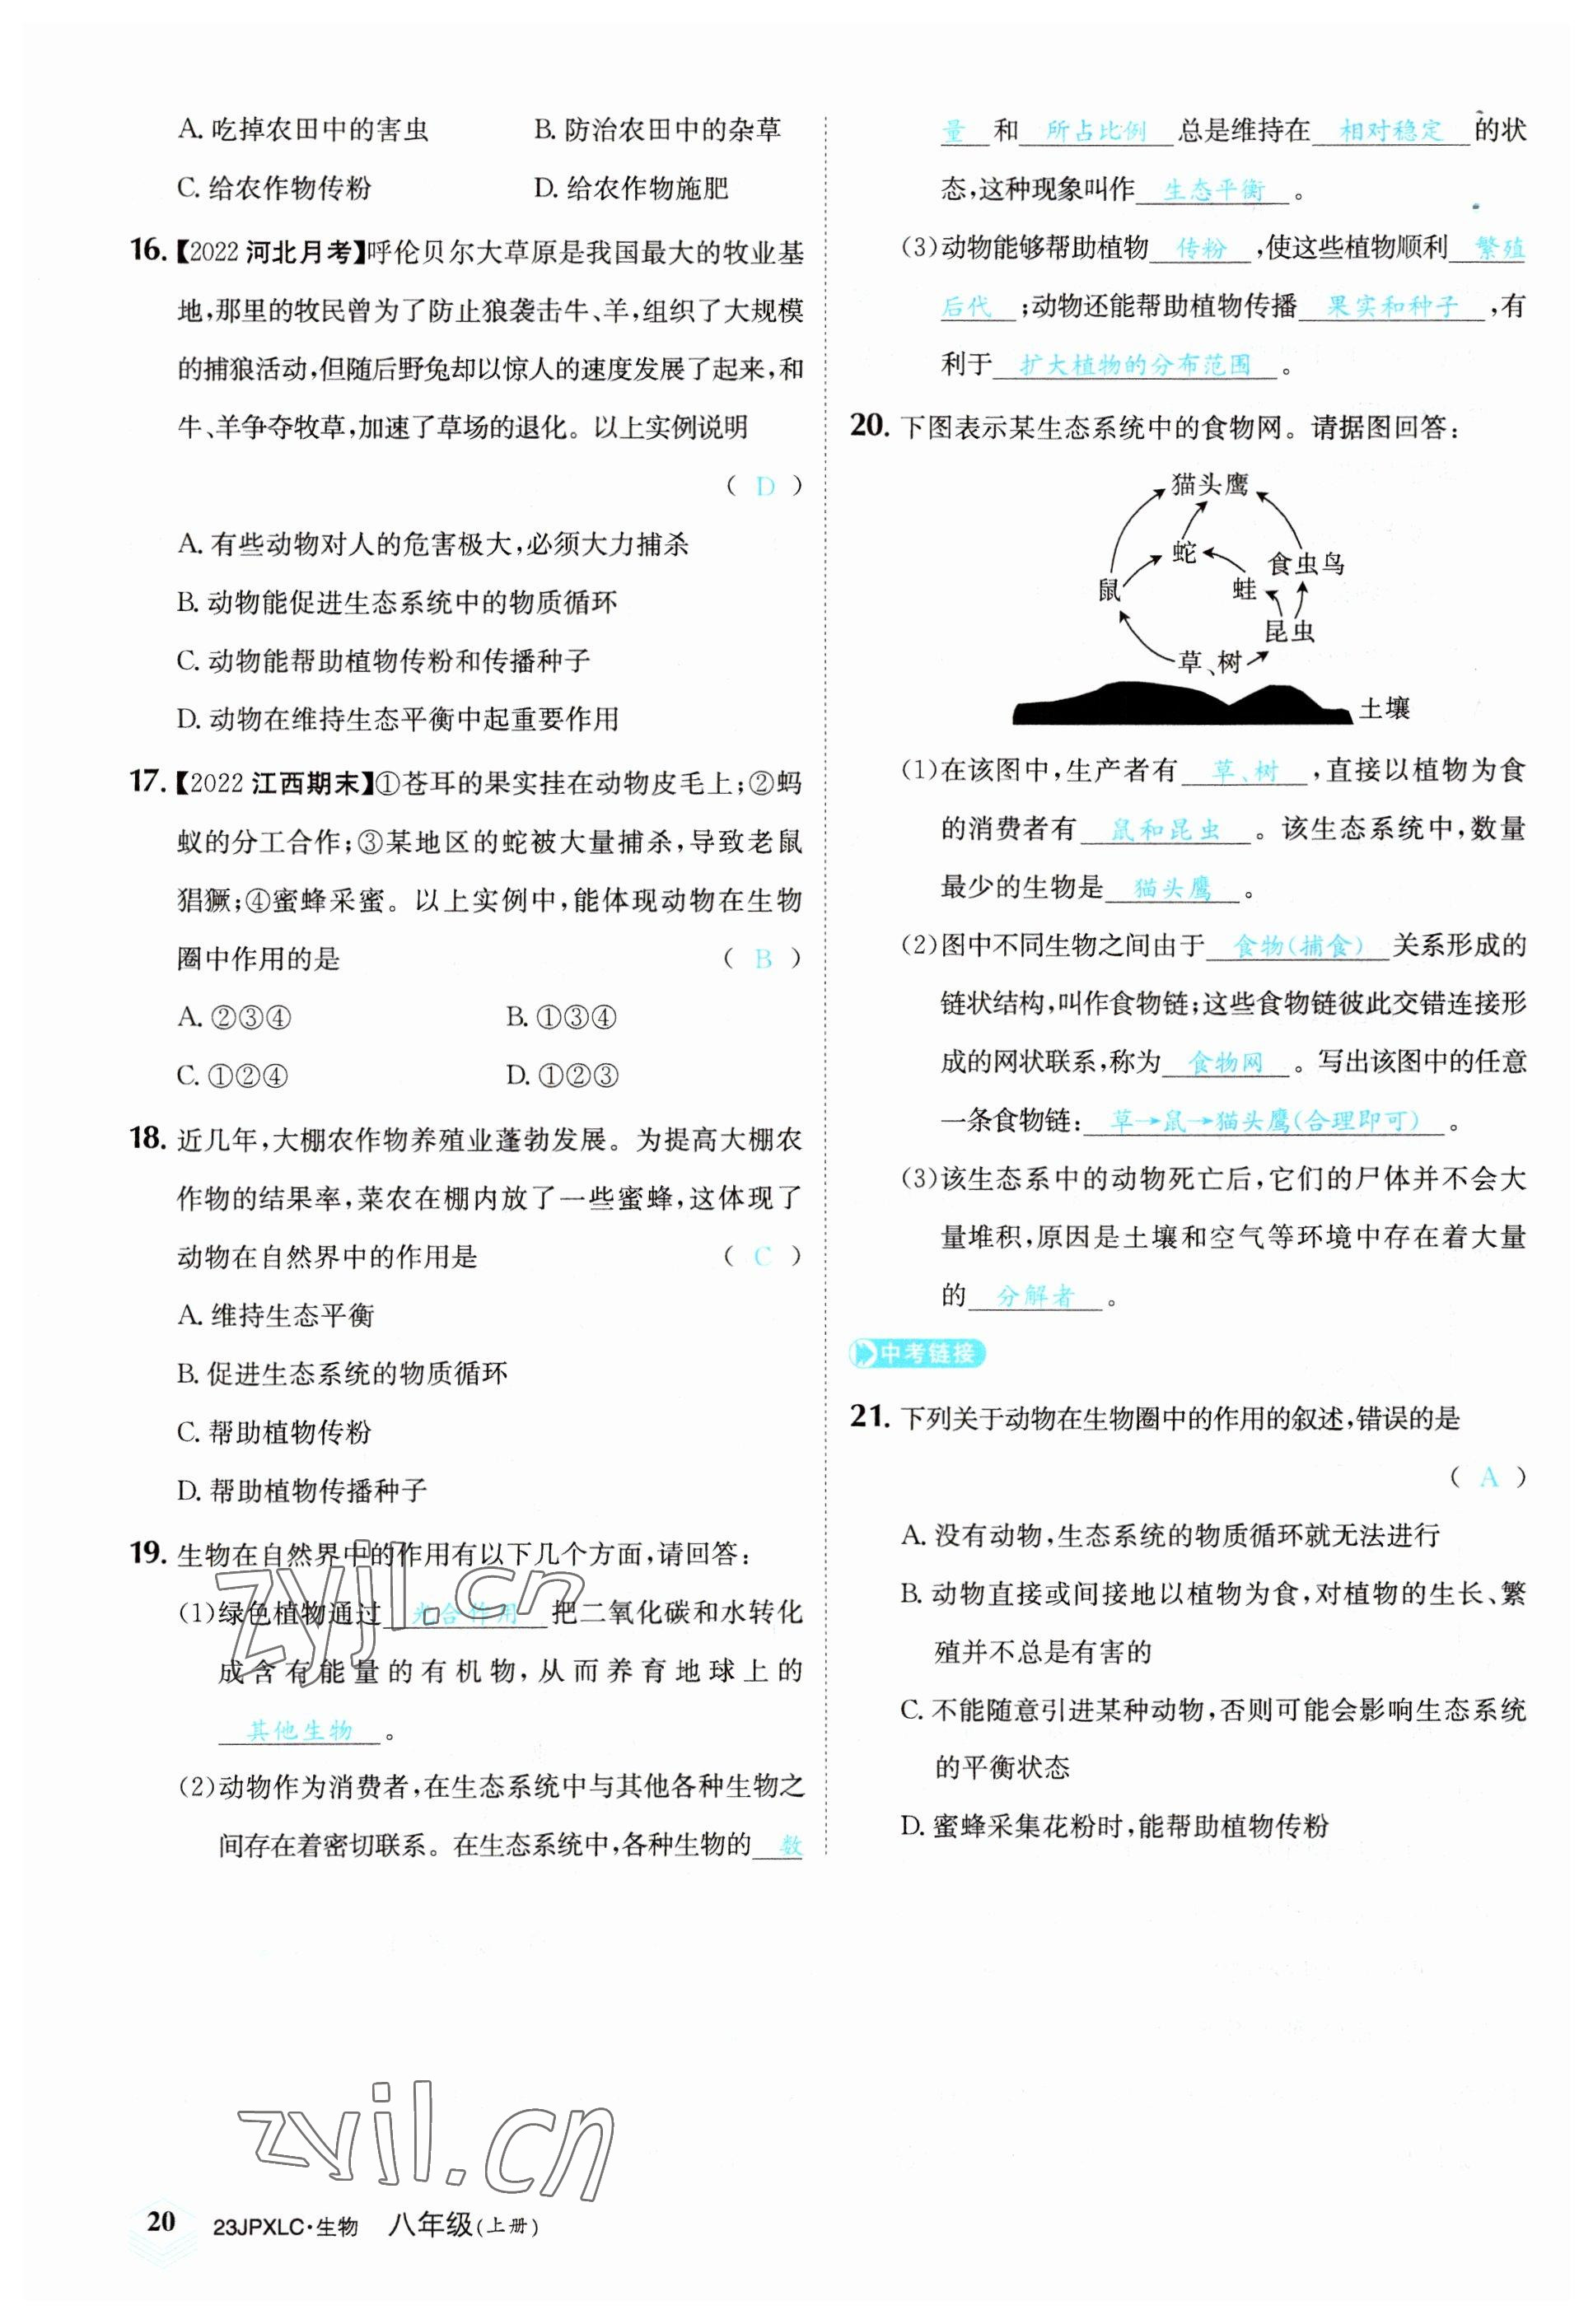 A. 吃掉农田中的害虫 B. 防治农田中的杂草
C. 给农作物传粉 D. 给农作物施肥
16.【2022 河北月考】呼伦贝尔大草原是我国最大的牧业基
地,那里的牧民曾为了防止狼袭击牛、羊,组织了大规模
的捕狼活动,但随后野兔却以惊人的速度发展了起来,和
牛、羊争夺牧草,加速了草场的退化。以上实例说明
( D )
A. 有些动物对人的危害极大,必须大力捕杀
B. 动物能促进生态系统中的物质循环
C. 动物能帮助植物传粉和传播种子
D. 动物在维持生态平衡中起重要作用
17.【2022 江西期末】①苍耳的果实挂在动物皮毛上;②蚂
蚁的分工合作;③某地区的蛇被大量捕杀,导致老鼠
猖獗;④蜜蜂采蜜。以上实例中,能体现动物在生物
圈中作用的是 ( B )
A. ②③④ B. ①③④
C. ①②④ D. ①②③
18. 近几年,大棚农作物养殖业蓬勃发展。为提高大棚农
作物的结果率,菜农在棚内放了一些蜜蜂,这体现了
动物在自然界中的作用是 ( C )
A. 维持生态平衡
B. 促进生态系统的物质循环
C. 帮助植物传粉
D. 帮助植物传播种子
19. 生物在自然界中的作用有以下几个方面,请回答:
(1)绿色植物通过 光合作用 把二氧化碳和水转化
成含有能量的有机物,从而养育地球上的
其他生物 。
(2)动物作为消费者,在生态系统中与其他各种生物之
间存在着密切联系。在生态系统中,各种生物的 数
量 和 所占比例 总是维持在 相对稳定 的状
态,这种现象叫作 生态平衡 。
(3)动物能够帮助植物 传粉 ,使这些植物顺利 繁殖
后代 ;动物还能帮助植物传播 果实和种子 ,有
利于 扩大植物的分布范围 。
20. 下图表示某生态系统中的食物网。请据图回答:
猫头鹰
蛇
食虫鸟
鼠
蛙
昆虫
草、树
土壤
(1)在该图中,生产者有 草、树 ,直接以植物为食
的消费者有 鼠和昆虫 。该生态系统中,数量
最少的生物是 猫头鹰 。
(2)图中不同生物之间由于 食物(捕食) 关系形成的
链状结构,叫作食物链;这些食物链彼此交错连接形
成的网状联系,称为 食物网 。写出该图中的任意
一条食物链: 草→鼠→猫头鹰(合理即可) 。
(3)该生态系中的动物死亡后,它们的尸体并不会大
量堆积,原因是土壤和空气等环境中存在着大量
的 分解者 。
中考链接
21. 下列关于动物在生物圈中的作用的叙述,错误的是
( A )
A. 没有动物,生态系统的物质循环就无法进行
B. 动物直接或间接地以植物为食,对植物的生长、繁
殖并不总是有害的
C. 不能随意引进某种动物,否则可能会影响生态系统
的平衡状态
D. 蜜蜂采集花粉时,能帮助植物传粉
zyjl.cn
zyjl.cn
20 23JPXLC·生物 八年级(上册)